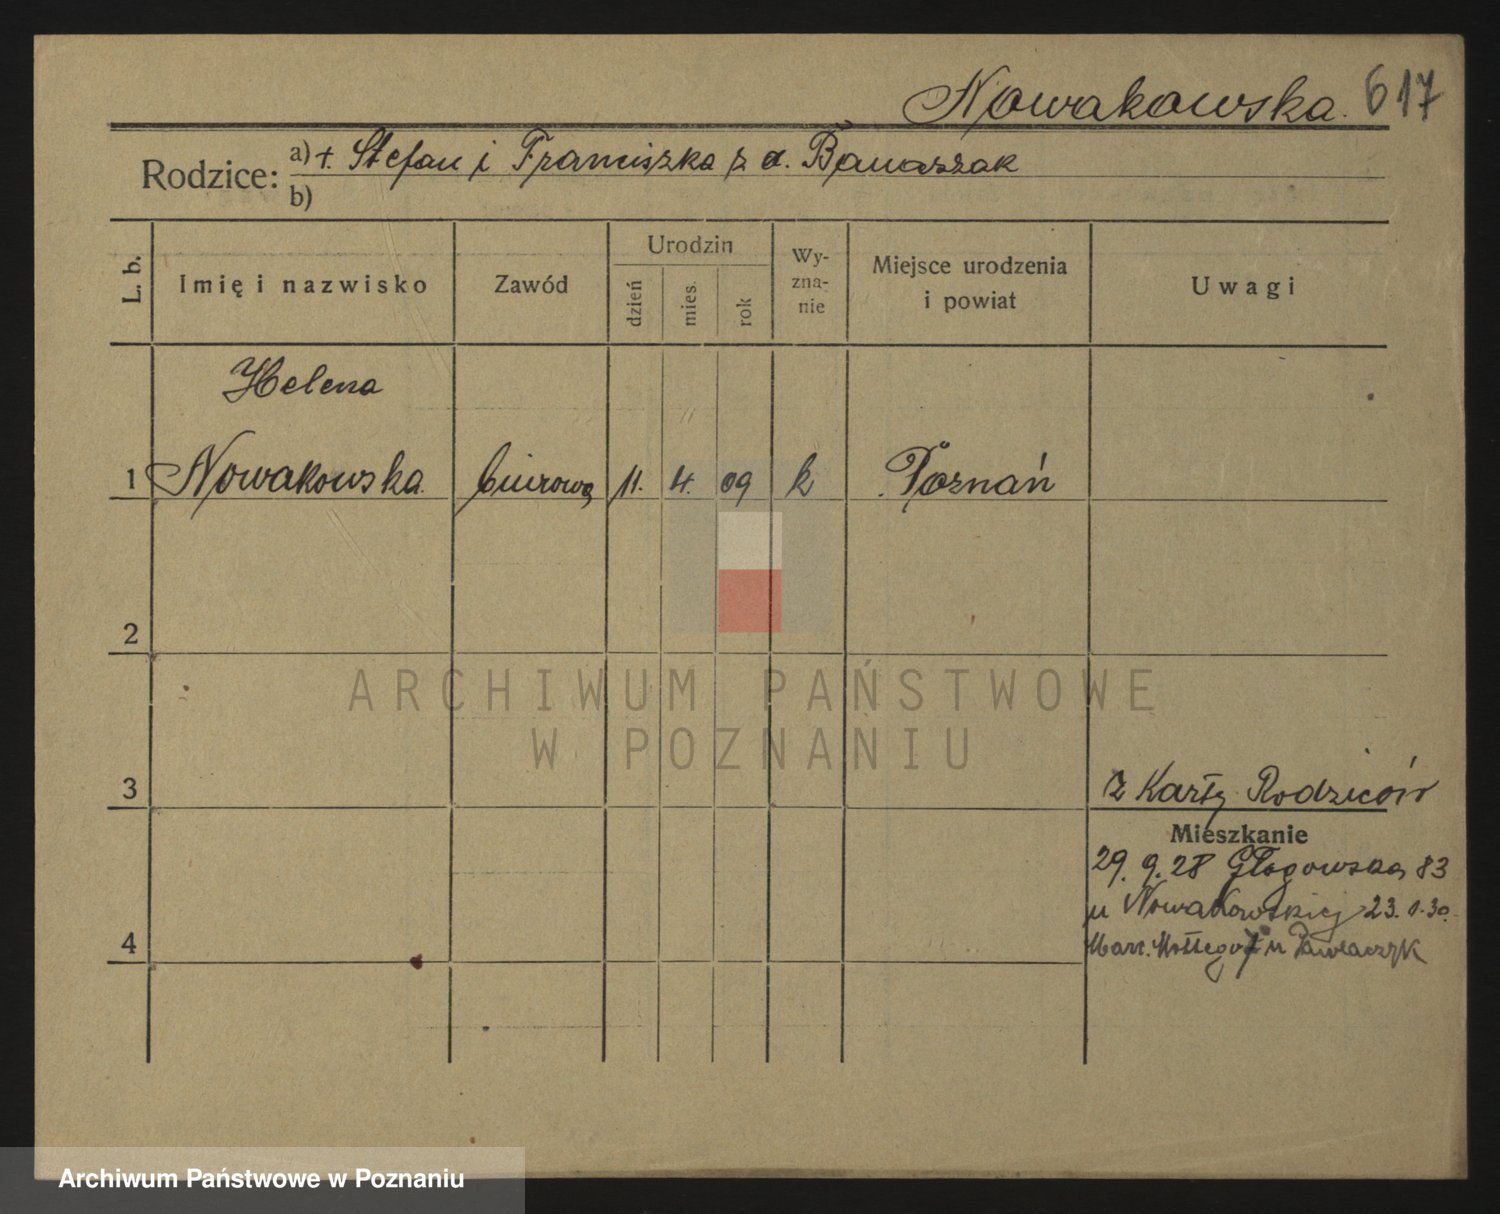 Nowakowska. 617
Rodzice: a) +. Stefan i Franciszka z d. Banaszak
b)
L. b.
Imię i nazwisko
Zawód
Urodzin
dzień
mies.
rok
Wy-
zna-
nie
Miejsce urodzenia
i powiat
Uwagi
Helena
1 Nowakowska. biurowa 11. 4. 09 k Poznań
2
ARCHIWUM PAŃSTWOWE
W POZNANIU
3 z Karty Rodziców
Mieszkanie
29. 9. 28 Głogowska 83
u Nowakowskiej 23. 1. 30.
4 Marc. Mottego u Pawlaczyk
Archiwum Państwowe w Poznaniu